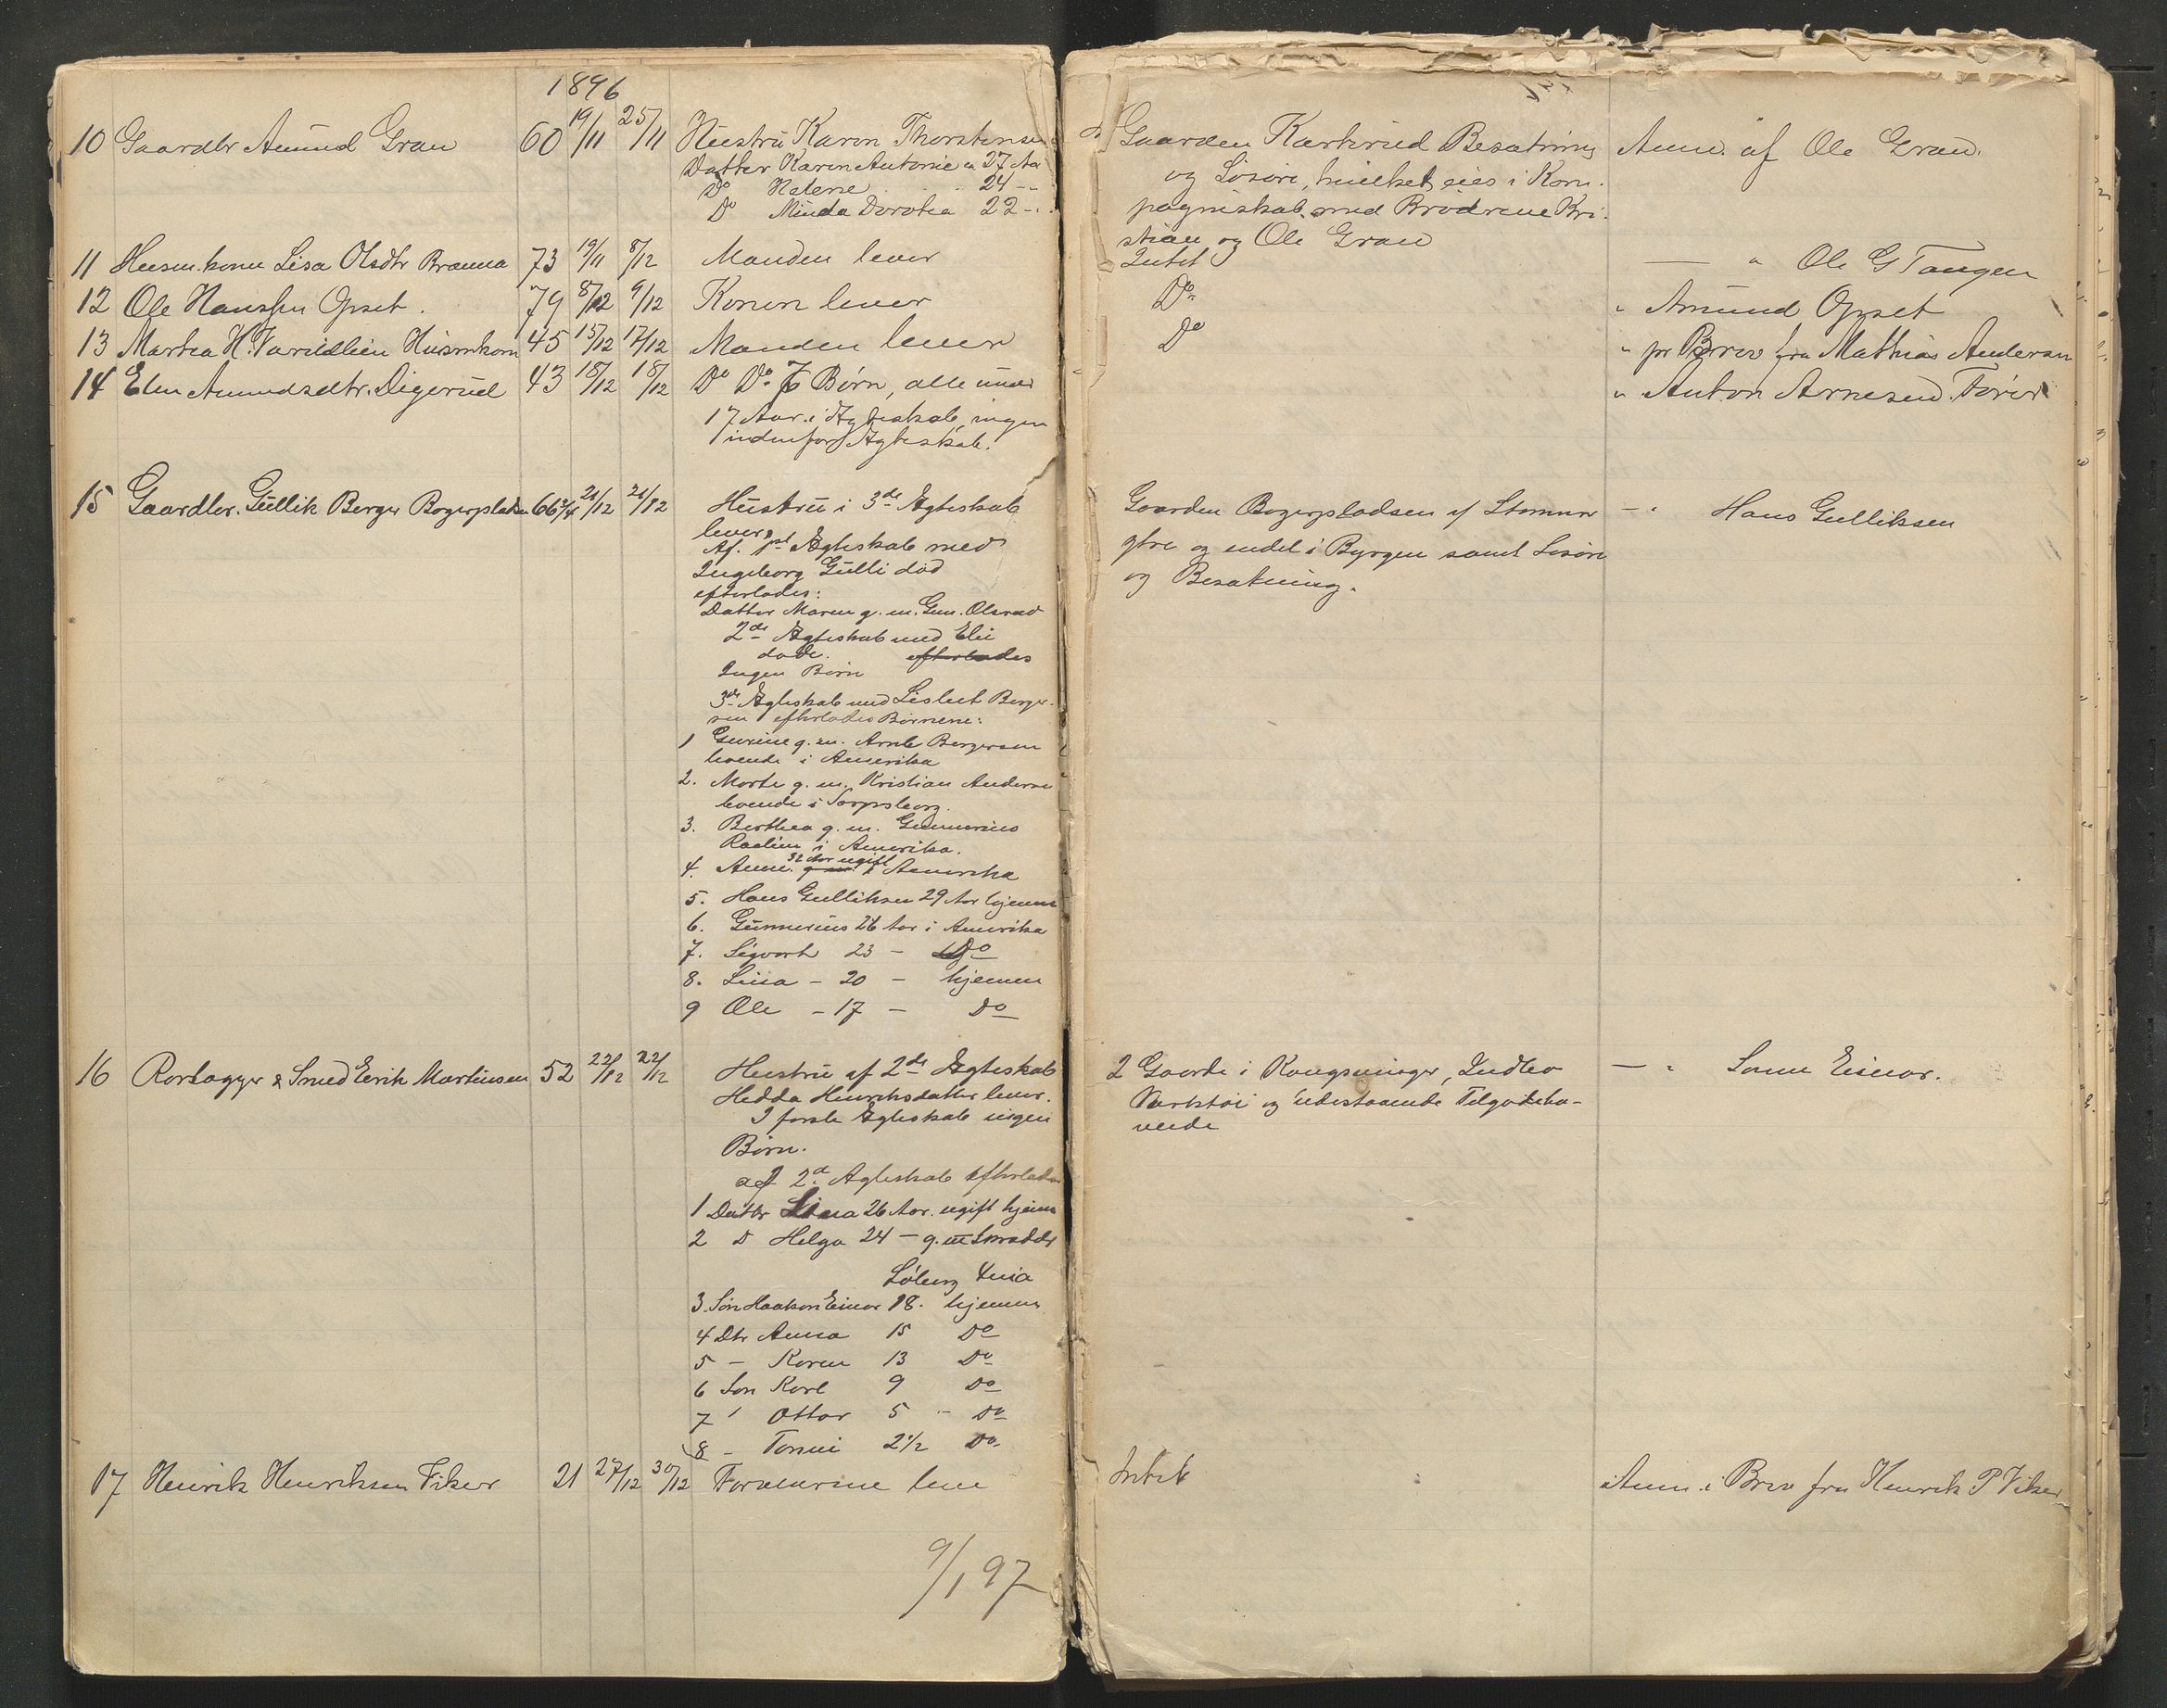 1896
10 Gaardbr Amund Gran 60 19/11 25/11 Hustru Karen Thorstensen
Datter Karen Antonie 27 Aar
Do Helene 24 -
Do Minda Dorotea 22 -
Gaarden Besætning
og Løsøre, hvilket eies i Kom-
pagniskab med Brødrene Kri-
stian og Ole Gran
Anm. af Ole Gran.
11 Husm.kone Lisa Olsdtr Brænna 73 19/11 8/12 Manden lever
Intet
— " Ole G Tangen
12 Ole Hanssen Opset. 79 8/12 9/12 Konen lever
Do
" Amund Opset
13 Martea H. Husmkone 45 15/12 17/12 Manden lever
Do
" pr Brev fra Mathias Andersen
14 Elen Amundsdtr. Digerud 43 18/12 18/12 Do Do 7 Børn, alle under
17 Aar i Ægteskab, ingen
indenfor Ægteskab.
" Anton Arnesen
15 Gaardbr. Gullik Berger Bogerpladsen 66 21/12 21/12 Hustru i 3de Ægteskab
lever
Af 1ste Ægteskab med
Ingeborg Gulli død
efterlades:
Datter Maren g. m. Gun. Olsrud
2de Ægteskab med Eli
døde. efterlades
Ingen Børn
3de Ægteskab med Lisbet Berger-
sen efterlades Børnene:
1 Gurine g. m. Arnt Bergersen
boende i Amerika
2. Marte g. m. Kristian Andersen
boende i Sarpsborg.
3. Berthea g. m. Gunnerius
i Amerika.
4. Anne 32 Aar ugift i Amerika
5. Hans Gulliksen 29 Aar hjemme
6. Gunnerius 26 Aar i Amerika
7. Sigvart 23 - Do
8. Lina - 20 - hjemme
9 Ole - 17 - Do
Gaarden Bogerpladsen af Stommen
og endel i Byrgen samt Løsøre
og Besætning.
— " Hans Gulliksen
16 & Smed Erik Martinsen 52 22/12 22/12 Hustru af 2de Ægteskab
Hedda Henriksdatter lever.
I første Ægteskab ingen
Børn.
af 2d Ægteskab efterlades
1 Dattr Lina 26 Aar. ugift hjemme
2 D Helga 24 - g. m Skrædder
Løberg
3. Søn Haakon Einar 18. hjemme
4 Dtr Anna 15 Do
5 - Karen 13 Do
6 Søn Karl 9 Do
7 " Ottar 5 - Do
8 - 2 1/2 Do
2 Gaarde i Kongsvinger, Indbo
Værktøi og udestaaende Tilgodeha-
vende
— " Sønn Einar.
17 Henrik Henriksen Viker 21 27/12 30/12 Forældrene leve
Intet
Anm. i Brev fra Henrik P Viker
9/1 97